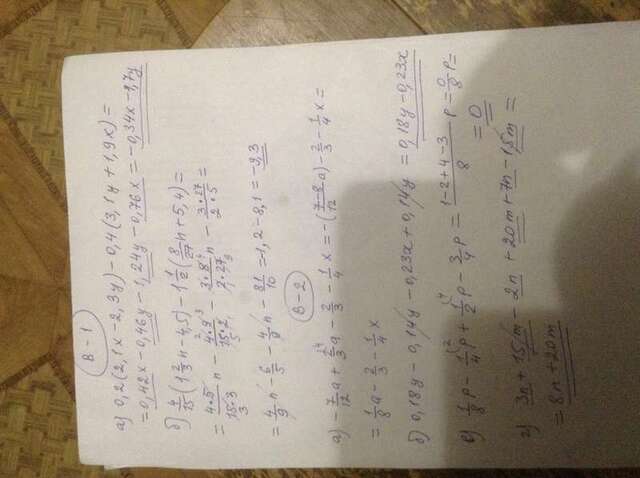 В-1
а) 0,2(2,1x-2,3y)-0,4(3,1y+1,9x)=
=0,42x-0,46y-1,24y-0,76x=-0,34x-1,7y
б) 4/15(1 2/3n-4,5)-1 1/2(8/27n+5,4)=
=4*5/15*3 n - 4*9/15*2 - 3*8/2*27 n - 3*27/2*5 =
=4/9n-6/5-4/9n-81/10=-1,2-8,1=-9,3
В-2
а) -7/12a+2/3a-2/3-1/4x=-(7-8/12 a)-2/3-1/4x=
=1/8a-2/3-1/4x
б) 0,18y-0,14y-0,23x+0,14y=0,18y-0,23x
в) 1/8p-1/4p+1/2p-3/4p=1-2+4-3/8 p=0/8p=
=0
г) 3n+15m-2n+20m+7n-15m=
=8n+20m